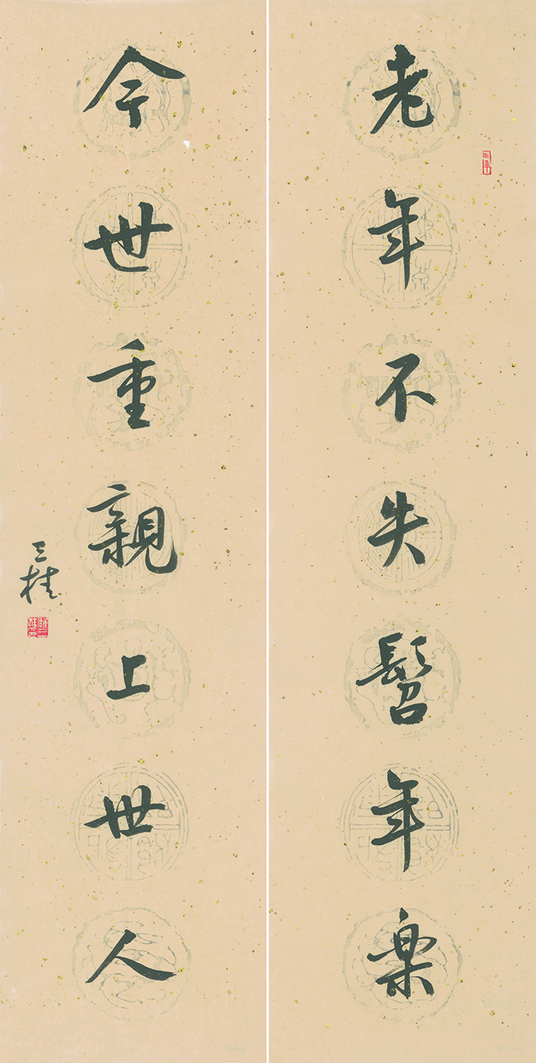 老年不失髫年樂
今世重親上世人
三桂